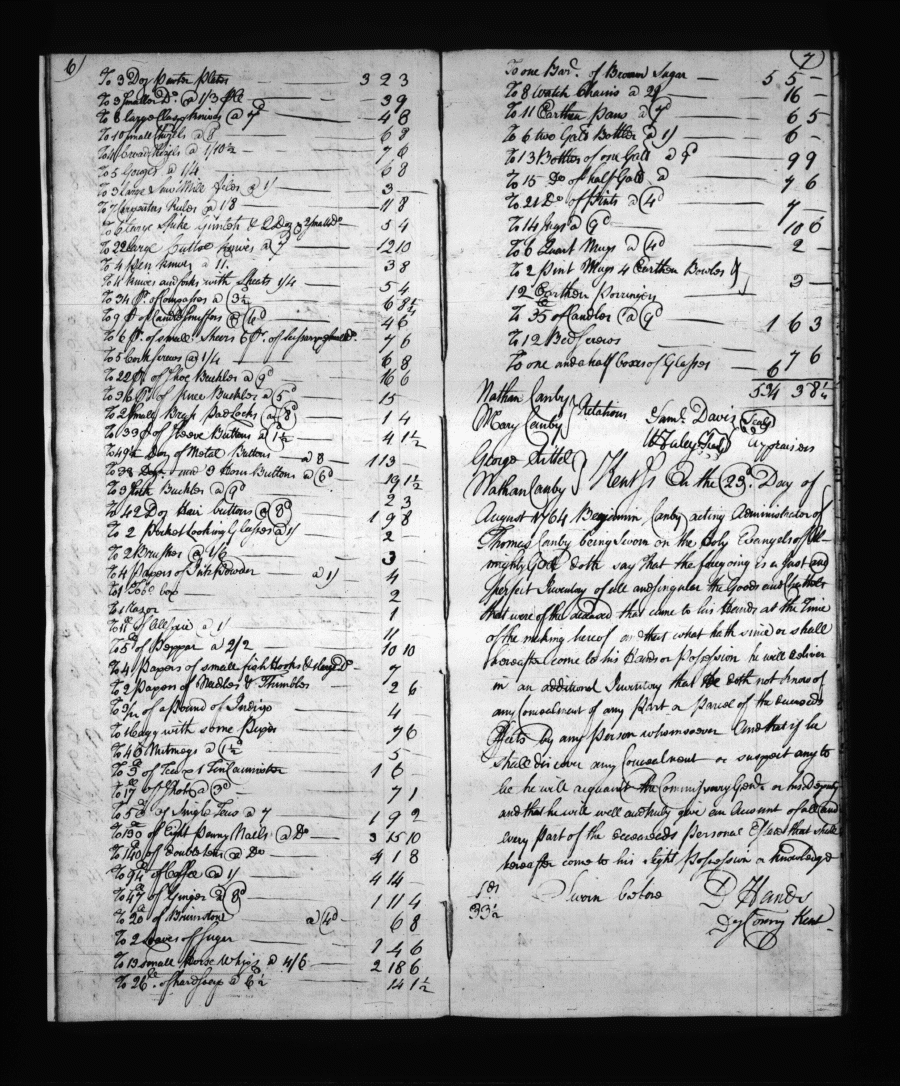 6
To 3 Doz Pewter Plates 3 2 3
To 3 Smaller Do. @ 1/3 39
To 8 large Claspknives @ 7d 4 8
To 10 small Chizels @ 8 6 8
To broad Chizels @ 1/10½ 7 6
To 5 Gouges @ 1/4 6 8
To 3 large Saw Mill files @ 1/ 3
To 7 Carpenters Rules @ 1/8 11 8
To 6 large Spike Gimlets & 2 Doz small Do 5 4
To 22 large knives @ 7 12 10
To 4 Pen knives @ 11 3 8
To 4 knives and forks with Sheets 1/4 5 4
To 34 Pr. of Compasses @ 3½
To 9 Pr of Candle Snuffers @ 4d 4 6
To 6 Pr. of small Sheers 6 Pr. of 7 6
To 5 Cork Screws @ 1/4 6 8
To 22 Pr of Shoe Buckles @ 9d 16 6
To 36 Pr. of knee Buckles @ 5d 15
To 2 small Brass Padlocks @ 8d 1 4
To 33 Pr of Sleeve Buttons @ 1½ 4 1½
To 49½ Doz of Metal Buttons @ 8 1 13
To 38 9 Horn Buttons @ 6d 19 1½
To 3 Buckles @ 9d 2 3
To 42 Doz Hair buttons @ 8d 1 9 8
To 2 Pocket Looking Glasses @ 1/ 2
To 2 Brushes @ 1/6 3
To 4 Papers of Ink Powder @ 1/ 4
To 1 Tobo. box 2
To 1 Razor 1
To 11 of Allspice @ 1/ 11
To 5 of Pepper @ 2/2 10 10
To 4 Papers of small fish Hooks & large Do 7
To 2 Papers of Needles & Thimbles 2 6
To of a Pound of Indigo 4
To Kagg with some Pipes 7 6
To 40 Nutmegs @ 1½ 5
To 3 of Tea & 1 Tin Cannister 1 6
To 17 of Shot @ 3d 7 1
To 50 of Single Tens @ 7 1 9 2
To 130 of Eight Penny Nails @ Do 3 15 10
To 140 of double tens @ Do 4 1 8
To 94 of Coffee @ 1/ 4 14
To 47 of Ginger @ 8d 1 11 4
To 20 of Brimstone @ 4d 6 8
To 2 Loaves of Sugar 1 4 6
To 13 small Horse Whips @ 4/6 2 18 6
To 26 of hard Soap @ 6½ 14 1½
7
To one Barl. of Brown Sugar 5 5
To 8 Watch Chains @ 2/ 16
To 11 Earthen Pans @ 7d 6 5
To 6 two Galls Bottles @ 1/ 6
To 13 Bottles of one Gall @ 9d 9 9
To 15 Do of half Gall @ 7 6
To 21 Do of Pints @ 4d 7
To 14 Jugs @ 9d 10 6
To 6 Quart Mugs @ 4d 2
To 2 Pint Mugs 4 Earthen Bowles
12 Earthen Porringers 3
To 35 of Candles @ 9d 1 6 3
To 12 Bed Screws
To one and a half boxes of Glasses 6 7 6
534 3 8¼
Nathan Canby
Mary Canby } Relations
Saml. Davis Seal
Wm Seal Appraisers
George
Nathan Canby } Kent Ss On the 23d. Day of
August 1764 Benjamin Canby acting Administrator of
Thomas Canby being Sworn on the Holy Evangels of Al-
mighty God doth say that the foregoing is a Just and
Perfect Inventory of all and singular the Goods and Chattels
that were of the deceased that came to his Hands at the Time
of the making hereof and that what hath since or shall
hereafter come to his Hands or Possession he will deliver
in an additional Inventory that He doth not know of
any Concealment of any Part or Parcel of the deceaseds
Effects by any Person whomsoever And that if he
shall discover any Concealment or suspect any to
be he will acquaint the Commissary Genl. or his Deputy
and that he will well and truly give an Account of all and
every part of the deceaseds Personal Estate that shall
hereafter come to his Sight Possession or Knowledge
Sworn before D Hands
Dey Comry Kent